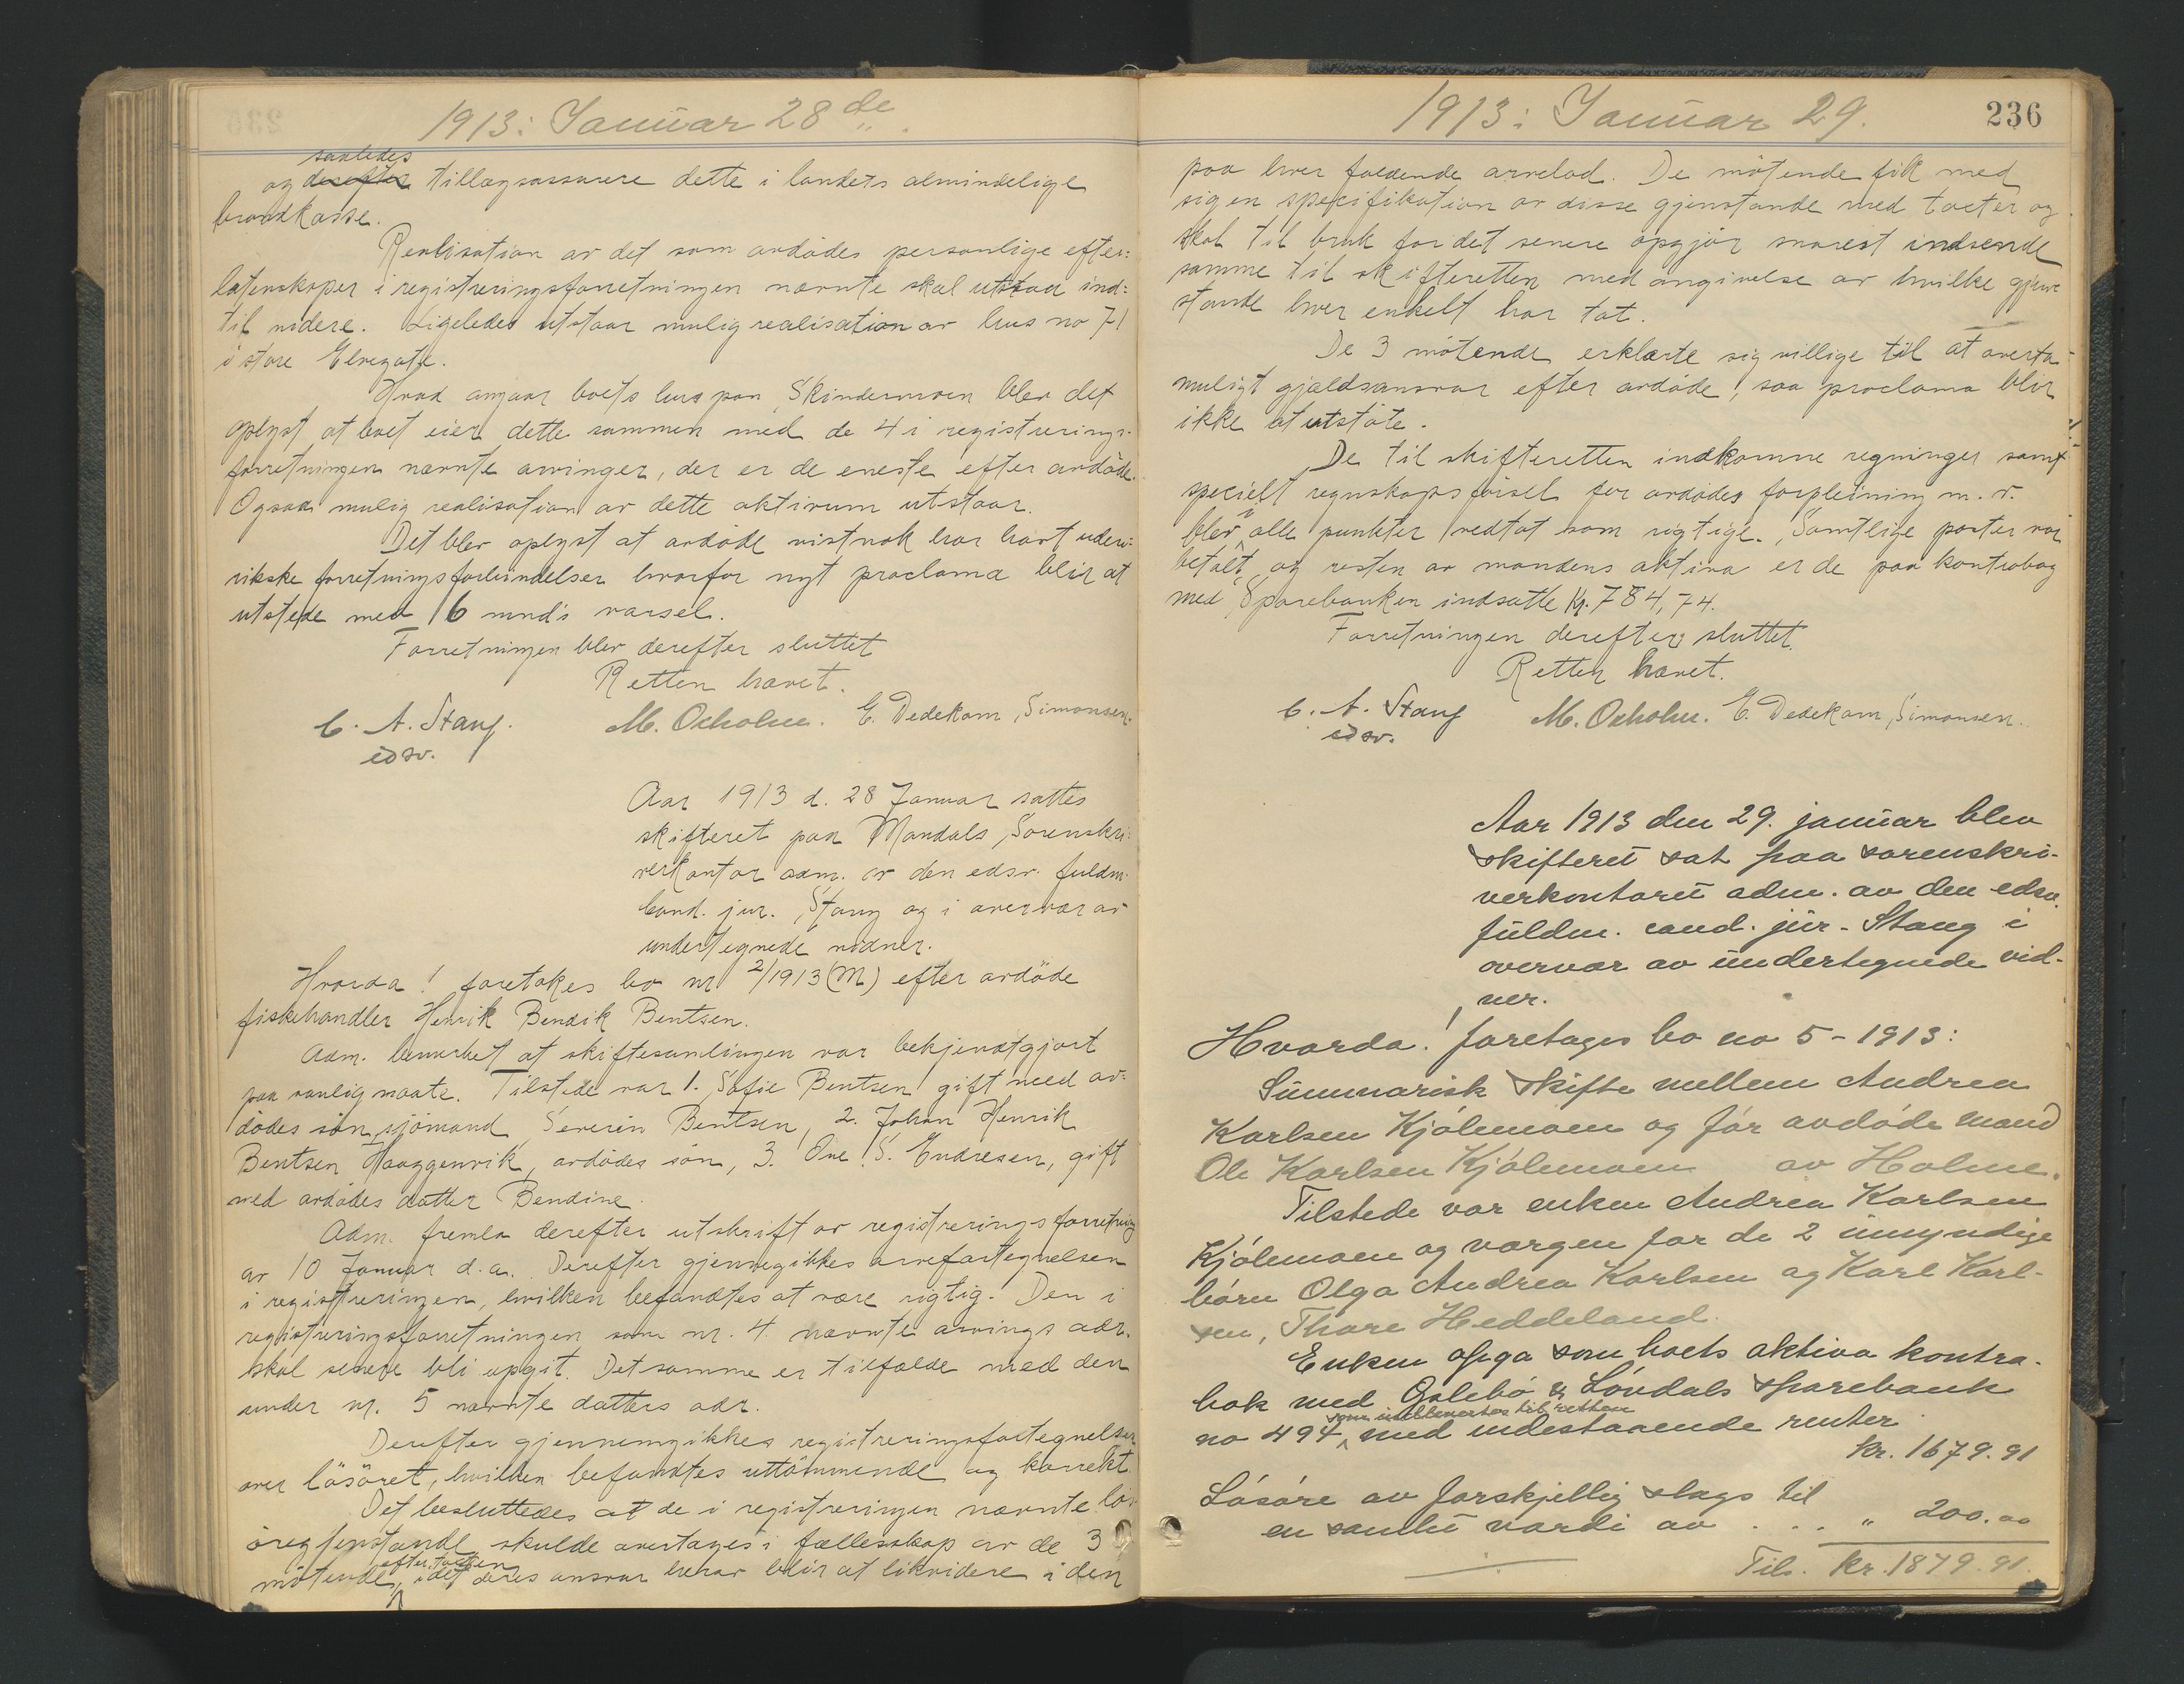 1913: Januar 28de.
saaledes
og derefter tillægsassurere dette i landets almindelige
brandkasse.
Realisation av det som avdødes personlige efter:
latenskaper i registreringsforretningen nævnte skal utstaa ind:
til videre. Ligeledes utstaar mulig realisation av hus no 71
i store Elvegate.
Hvad angaar boets hus paa Skindermoen blev det
oplyst at boet eier dette sammen med de 4 i registrerings-
forretningen nævnte arvinger, der er de eneste efter avdøde.
Ogsaa mulig realisation av dette aktivum utstaar.
Det blev oplyst at avdøde vistnok har havt uden:
rikske forretningsforbindelser hvorfor nyt proclama blir at
utstede med 6 mnd's varsel.
Forretningen blev derefter sluttet
Retten hævet.
C. A. Stang. M. Oxholm. E. Dedekam Simonsen.
edsv.
Aar 1913 d. 28 Januar sattes
skifteret paa Mandals Sorenskri:
verkontor adm. av den edsv. fuldm.
Cand. jur. Stang og i overvær av
undertegnede vidner.
Hvorda! foretokes bo nr 2/1913 (M) efter avdøde
fiskehandler Henrik Bendik Bentsen.
Adm. bemerket at skiftesamlingen var bekjendtgjort
paa vanlig maate. Tilstede var 1. Sofie Bentsen gift med av:
dødes søn, sjømand Severin Bentsen, 2. Johan Henrik
Bentsen Haaggenvik, avdødes søn, 3. Ove S. Endresen, gift
med avdødes datter Bendine.
Adm. fremla derefter utskrift av registreringsforretning
av 10 Januar d.a. Derefter gjennegikkes arvefortegnelsen
i registreringen, hvilken befandtes at være rigtig. Den i
registreringsforretningen som nr. 4 nævnte arvings adr.
skal senere bli opgit. Det samme er tilfælde med den
under nr. 5 nævnte datters adr.
Derefter gjennemgikkes registreringsfortegnelsen
over løsøret, hvilken befandtes uttømmende og korrekt
Det besluttedes at de i registreringen nævnte løs-
øregjenstande skulde overtages i fællesskap av de 3
efter taxten
møtende, idet deres ansvar herav blir at likvidere i den
1913: Januar 29. 236
paa hver faldende arvelod. De møtende fik med
sig en specifikation av disse gjenstande med taxter og
skal til bruk for det senere opgjør snarest indsende
samme til skifteretten med angivelse av hvilke gjen-
stande hver enkelt har tat.
De 3 møtende erklærte sig villige til at overta
muligt gjældsansvar efter avdøde, saa proclama blir
ikke at utstøte.
De til skifteretten indkomne regninger samt
specielt regnskapsførsel for avdødes forpleining m. v.
blev i alle punkter vedtat som rigtige. Samtlige poster var
betalt og resten av mandens aktiva er de paa kontrabog
med Sparebanken indsatte Kr. 784,74.
Forretningen derefter sluttet.
Retten hævet.
C. A. Stang M. Oxholm. E. Dedekam Simonsen.
edsv.
Aar 1913 den 29. januar blev
skifteret sat paa sorenskri-
verkontoret adm. av den edsv.
fuldm. cand. jur. Stang i
overvær av undertegnede vid-
ner.
Hvorda! foretages bo no 5 - 1913:
Summarisk skifte mellem Andrea
Karlsen Kjølemoen og før avdøde mand
Ole Karlsen Kjølemoen av Holme.
Tilstede var enken Andrea Karlsen
Kjølemoen og værgen for de 2 umyndige
børn Olga Andrea Karlsen og Karl Karl-
sen, Thore Heddeland.
Enken opga som boets aktiva kontra-
bok med Øslebø & Løvdals sparebank
som indleveertes til retten
no 494, med indestaaende renter
Kr. 1679.91
Løsøre av forskjellig slags til
en samlet værdi av . . . " 200.00
Tils. Kr. 1879.91.